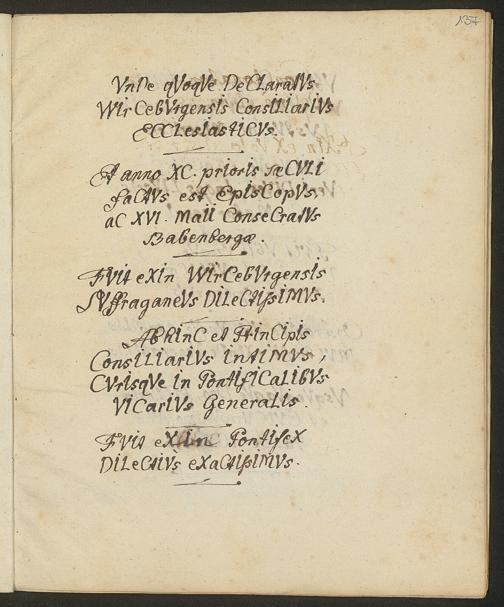 157
VnDe qVoqVe DeCLaratVs
WIrCebVrgensIs ConsILIarIVs
ECCLesIastICVs.
Et anno XC. prIorIs saCVLI
faCtVs est EpIsCopVs,
aC XVI. MaII ConseCratVs
Babenbergæ.
FVIt eXIn WIrCebVrgensIs
SVffraganeVs DILeCtIssIMVs.
AbhInC et PrInCIpIs
ConsILIarIVs IntIMVs,
CVrIsqVe In PontIfICaLIbVs
VICarIVs GeneraLIs.
FVIt eXInC PontIfeX
DILeCtIVs eXaCtIssIMVs.